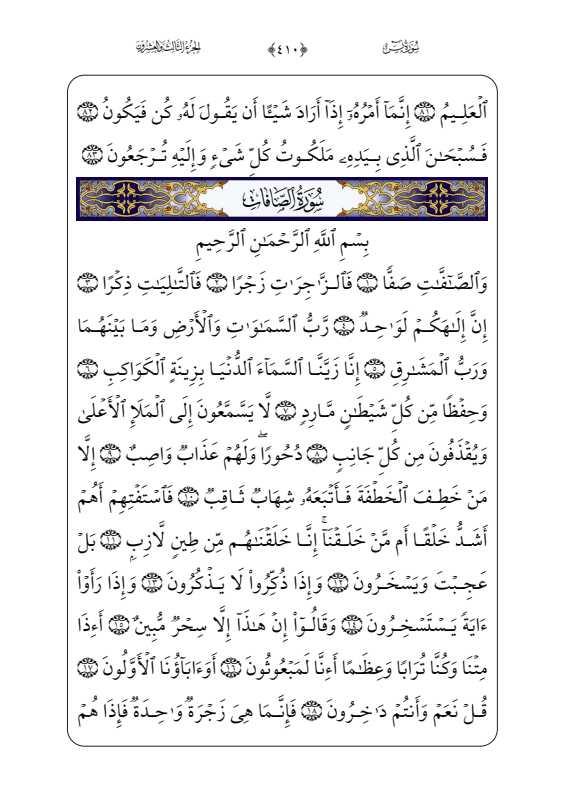 سُورَةُ يسٓ ﴿٤١٠﴾ الجزءُ الثَّالِثُ وَالعِشْرُونَ
ٱلْعَلِيمُ ۝٨١ إِنَّمَآ أَمْرُهُۥٓ إِذَآ أَرَادَ شَيْـًٔا أَن يَقُولَ لَهُۥ كُن فَيَكُونُ ۝٨٢
فَسُبْحَـٰنَ ٱلَّذِى بِيَدِهِۦ مَلَكُوتُ كُلِّ شَىْءٍ وَإِلَيْهِ تُرْجَعُونَ ۝٨٣
سُورَةُ الصَّافَاتِ
بِسْمِ ٱللَّهِ ٱلرَّحْمَـٰنِ ٱلرَّحِيمِ
وَٱلصَّـٰٓفَّـٰتِ صَفًّا ۝١ فَٱلزَّٰجِرَٰتِ زَجْرًا ۝٢ فَٱلتَّـٰلِيَـٰتِ ذِكْرًا ۝٣
إِنَّ إِلَـٰهَكُمْ لَوَٰحِدٌ ۝٤ رَّبُّ ٱلسَّمَـٰوَٰتِ وَٱلْأَرْضِ وَمَا بَيْنَهُمَا
وَرَبُّ ٱلْمَشَـٰرِقِ ۝٥ إِنَّا زَيَّنَّا ٱلسَّمَآءَ ٱلدُّنْيَا بِزِينَةٍ ٱلْكَوَاكِبِ ۝٦
وَحِفْظًا مِّن كُلِّ شَيْطَـٰنٍ مَّارِدٍ ۝٧ لَّا يَسَّمَّعُونَ إِلَى ٱلْمَلَإِ ٱلْأَعْلَىٰ
وَيُقْذَفُونَ مِن كُلِّ جَانِبٍ ۝٨ دُحُورًا ۖ وَلَهُمْ عَذَابٌ وَاصِبٌ ۝٩ إِلَّا
مَنْ خَطِفَ ٱلْخَطْفَةَ فَأَتْبَعَهُۥ شِهَابٌ ثَاقِبٌ ۝١٠ فَٱسْتَفْتِهِمْ أَهُمْ
أَشَدُّ خَلْقًا أَم مَّنْ خَلَقْنَآ ۚ إِنَّا خَلَقْنَـٰهُم مِّن طِينٍ لَّازِبٍۭ ۝١١ بَلْ
عَجِبْتَ وَيَسْخَرُونَ ۝١٢ وَإِذَا ذُكِّرُوا۟ لَا يَذْكُرُونَ ۝١٣ وَإِذَا رَأَوْا۟
ءَايَةً يَسْتَسْخِرُونَ ۝١٤ وَقَالُوٓا۟ إِنْ هَـٰذَآ إِلَّا سِحْرٌ مُّبِينٌ ۝١٥ أَءِذَا
مِتْنَا وَكُنَّا تُرَابًا وَعِظَـٰمًا أَءِنَّا لَمَبْعُوثُونَ ۝١٦ أَوَءَابَآؤُنَا ٱلْأَوَّلُونَ ۝١٧
قُلْ نَعَمْ وَأَنتُمْ دَٰخِرُونَ ۝١٨ فَإِنَّمَا هِىَ زَجْرَةٌ وَٰحِدَةٌ فَإِذَا هُمْ